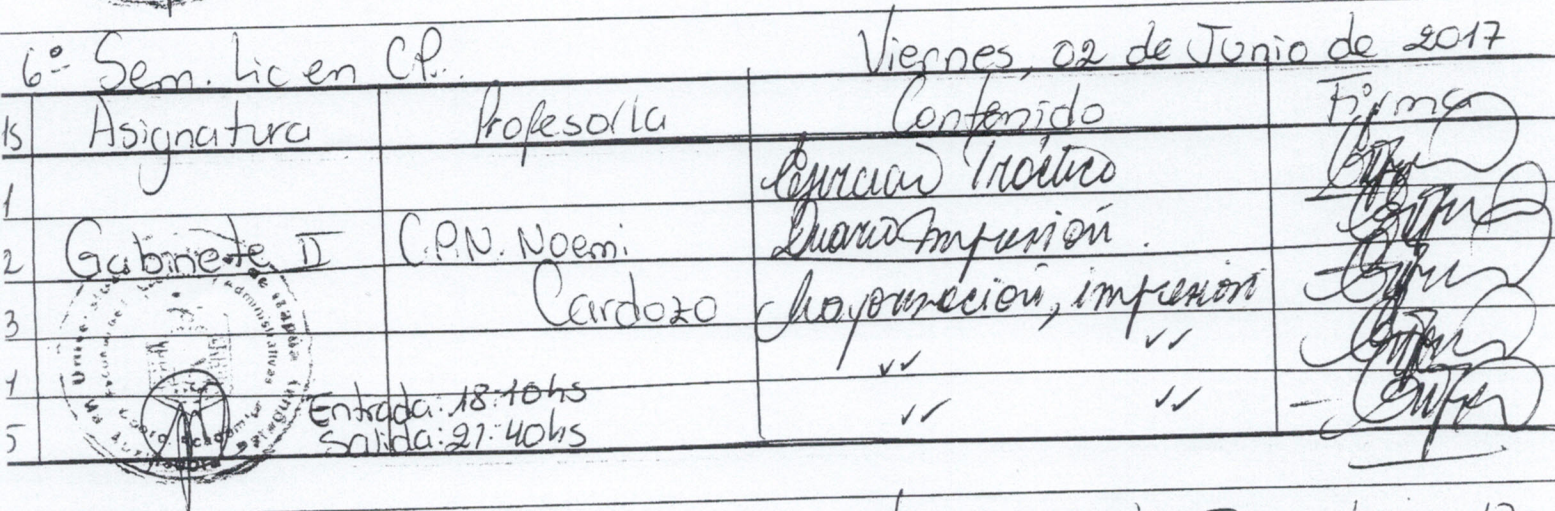 6º Sem. Lic en CP. Viernes, 02 de Junio de 2017
Hs Asignatura Profesor/la Contenido Firma
1 Ejercicio Práctico
2 Gabinete II C.P.N. Noemi Diario Impresión.
3 Cardozo Mayorización, impresión
✓✓ ✓✓
Entrada: 18:10hs
5 Salida: 21:40hs ✓✓ ✓✓